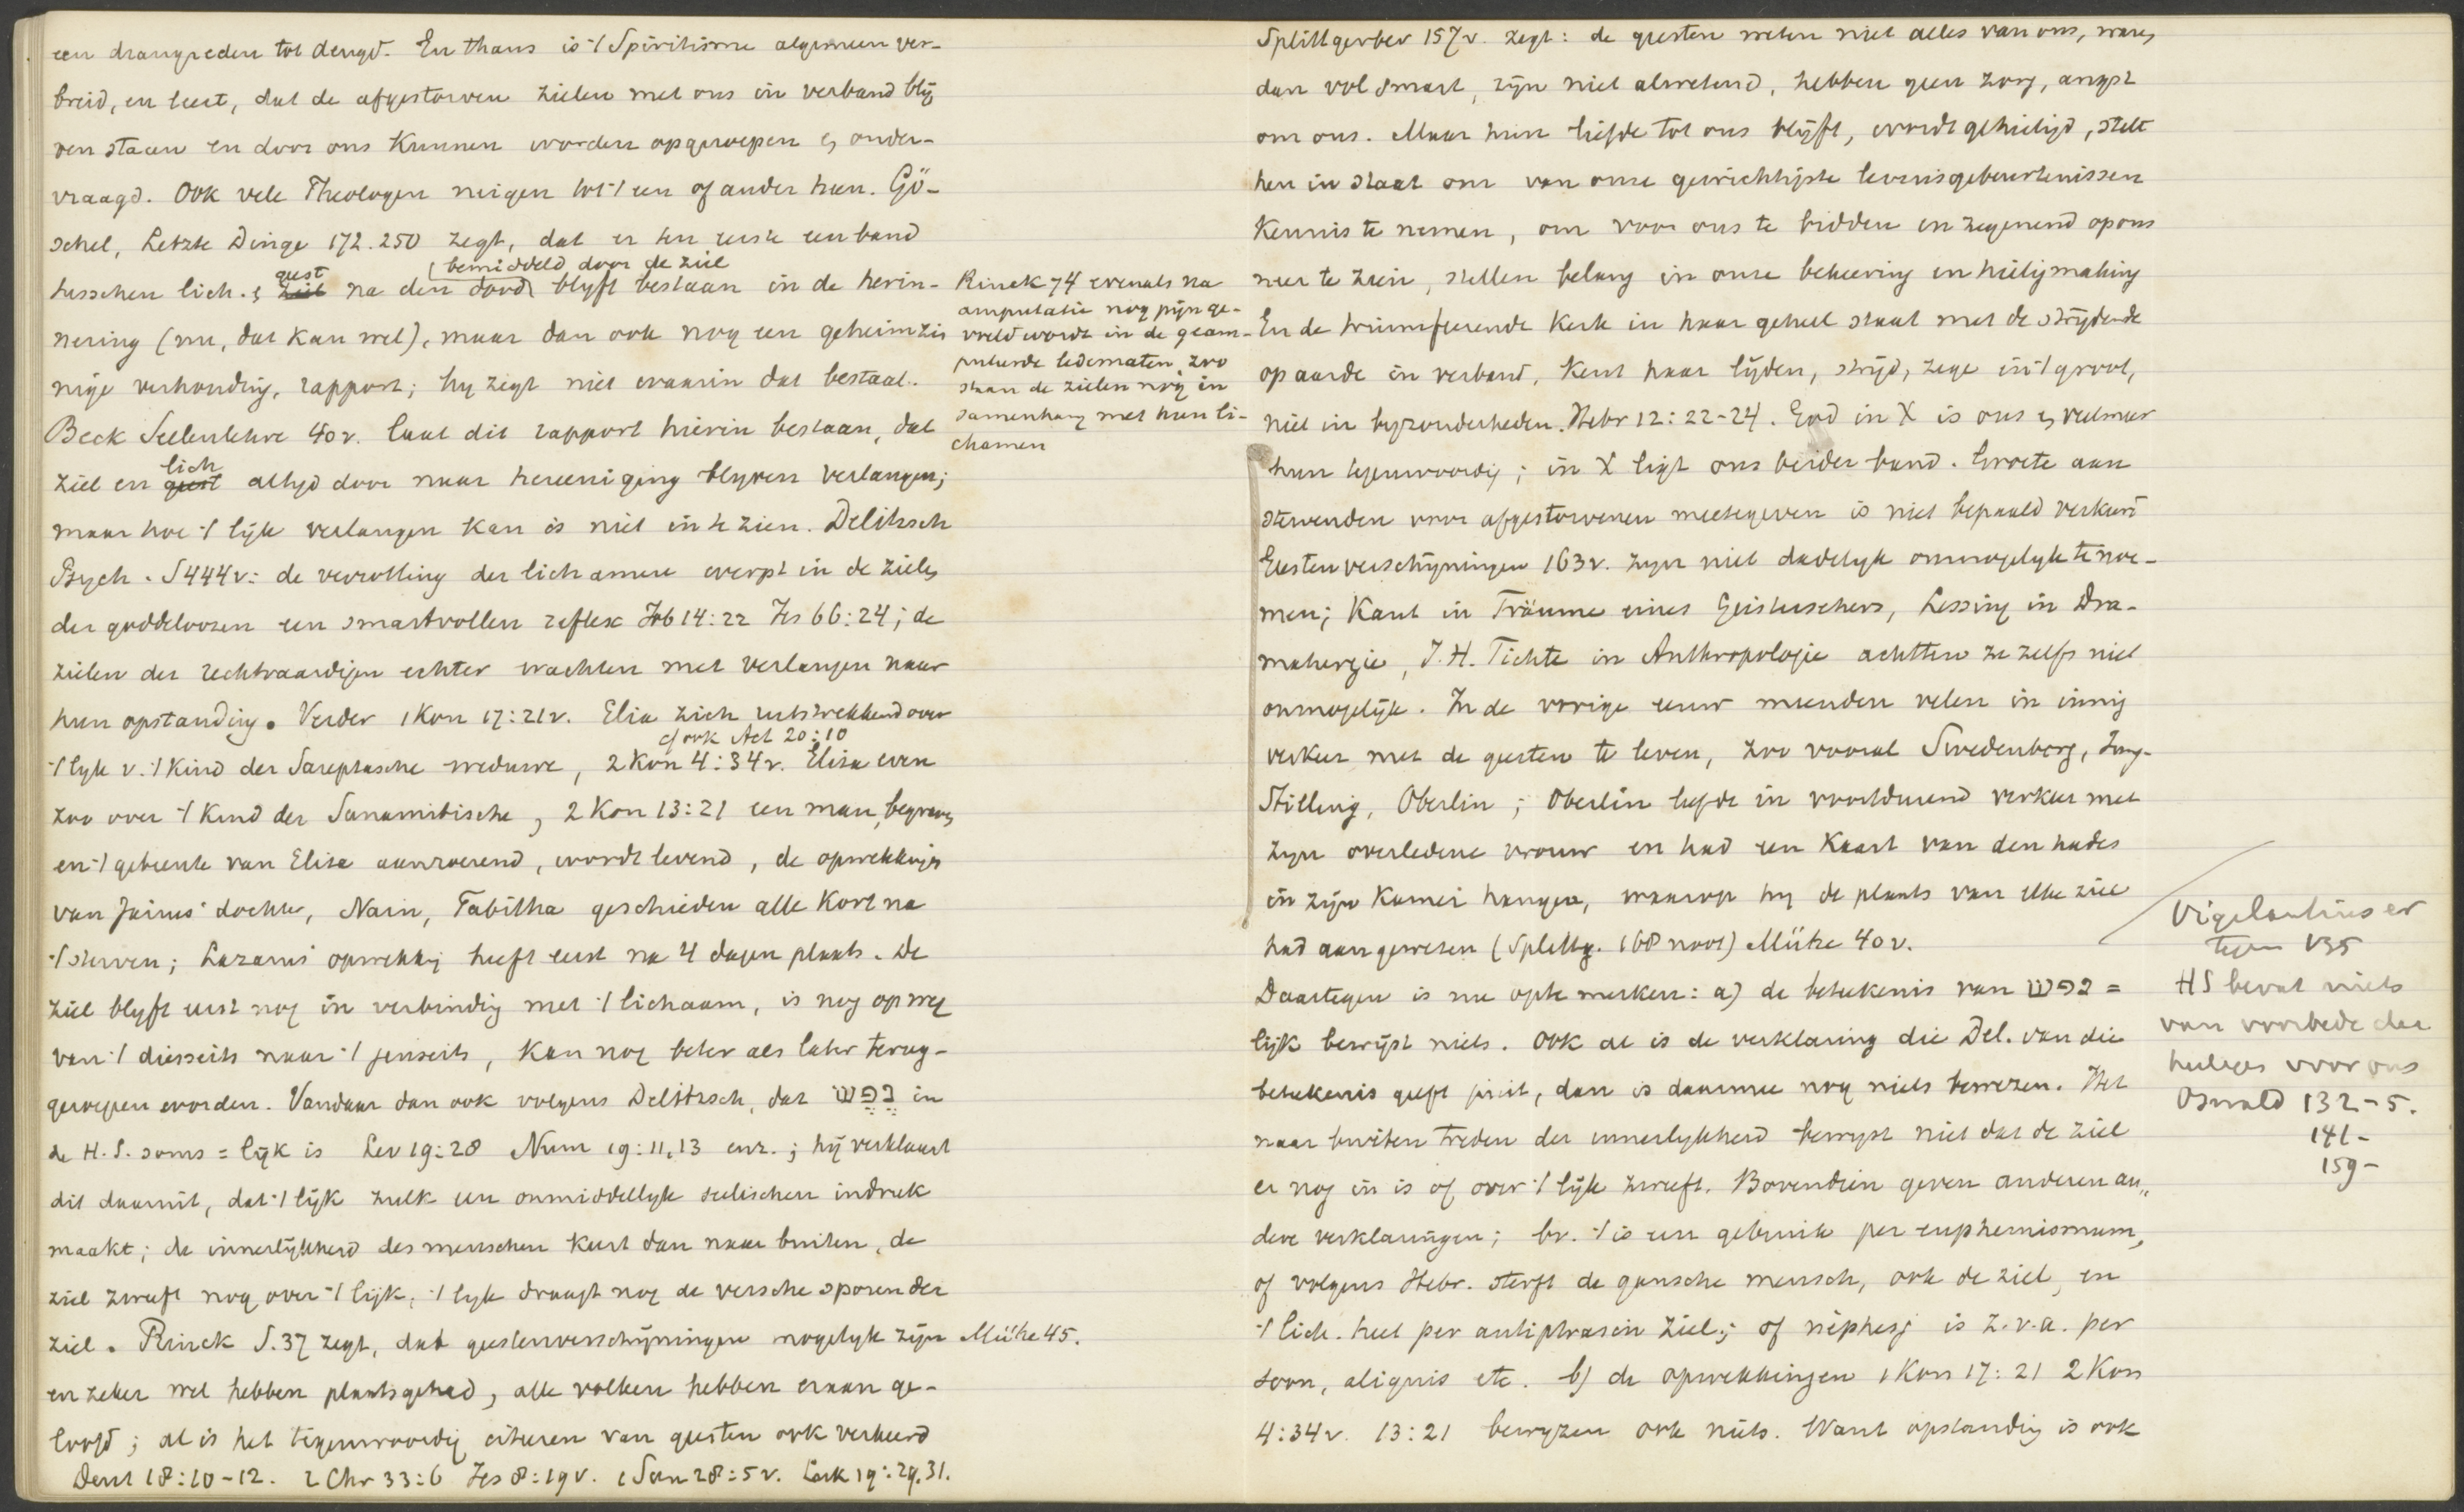 een drangreden tot deugd. En thans is 't Spiritisme algemeen ver-
breid, en leert, dat de afgestorven zielen met ons in verband blij
ven staan en door ons kunnen worden opgeroepen & onder-
vraagd. Ook vele Theologen neigen tot 't een of ander heen. Gö-
schel, Letzte Dinge 172.250 zegt, dat er ten eerste een band
geest (bemiddeld door de ziel
tusschen lich. & ziel na den dood blyft bestaan in de herin-
nering (nu, dat kan wel), maar dan ook nog een geheimzin
nige verhouding, rapport; hy zegt niet waarin dat bestaat.
Beck Seelenlehre 40v. laat dit rapport hierin bestaan, dat
lich
ziel en geest altyd door naar hereeniging blyven verlangen;
maar hoe 't lijk verlangen kan is niet in te zien. Delitzsch
Psych. S444v: de verrotting der lichamen werpt in de zielen
der goddeloozen een smartvollen reflex Job 14:22 Jes 66:24; de
zielen der rechtvaardigen echter wachten met verlangen naar
hun opstanding. Verder 1 Kon 17:21v. Elia zich uitstrekkend over
cf ook Act 20:10
't lyk v. 't kind der Sareptasche weduwe, 2 Kon 4:34v. Elisa even
zoo over 't kind der Sunamitische, 2 Kon 13:21 een man, begraven
en 't gebeente van Elisa aanroerend, wordt levend, de opwekkingen
van Jairus' dochter, Nain, Tabitha geschieden alle kort na
't sterven; Lazarus' opwekking heeft eerst na 4 dagen plaats. De
ziel blyft eerst nog in verbinding met 't lichaam, is nog op weg
van 't diesseits naar 't jenseits, kan nog beter als later terug-
geroepen worden. Vandaar dan ook volgens Delitzsch, dat נפש in
de H.S. soms = lijk is Lev 19:28 Num 19:11,13 enz.; hij verklaart
dit daaruit, dat 't lijk zulk een onmiddellyk seelischen indruk
maakt; de innerlijkheid des menschen keert dan naar buiten, de
ziel zweeft nog over 't lijk, 't lyk draagt nog de versche sporen der
ziel. Rinck S.37 zegt, dat geestenverschijningen mogelyk zijn
en zeker wel hebben plaatsgehad, alle volken hebben eraan ge-
loofd; al is het tegenwoordig citeeren van geesten ook verkeerd
Deut 18:10-12. 2 Chr 33:6 Jes 8:19v. 1 Sam 28:5v. Luk 19:29.31.
Rinck 74 evenals na
amputatie nog pijn ge-
voeld wordt in de geam-
puteerde ledematen, zoo
staan de zielen nog in
samenhang met hun li-
chamen
Mühe 45.
Splittgerber 157v. zegt: de geesten weten niet alles van ons, waren
dan vol smart, zijn niet alwetend, hebben geen zorg, angst
om ons. Maar hun liefde tot ons blijft, wordt geheiligd, stelt
hen in staat om van onze gewichtigste levensgebeurtenissen
kennis te nemen, om voor ons te bidden en zegenend op ons
neer te zien, stellen belang in onze bekeering en heiligmaking
En de triumfeerende kerk in haar geheel staat met de strijdende
op aarde in verband, kent haar lijden, strijd, zege in 't groot,
niet in byzonderheden. Hebr 12:22-24. God in X is ons & veelmeer
hun tegenwoordig; in X ligt ons beider band. Groete aan
stervenden voor afgestorvenen meetegeven is niet bepaald verkeerd
Geestenverschijningen 163v. zijn niet dadelyk onmogelyk te noe-
men; Kant in Träume eines Geistersehers, Lessing in Dra-
maturgie, J.H. Fichte in Anthropologie achtten ze zelfs niet
onmogelijk. In de vorige eeuw meenden velen in innig
verkeer met de geesten te leven, zoo vooral Swedenborg, Jung-
Stilling, Oberlin; Oberlin leefde in voortdurend verkeer met
zijn overledene vrouw en had een kaart van den hades
in zijn kamer hangen, waarop hy de plaats van elke ziel
had aangewezen (Splittg. 168 noot) Mühe 40v.
Daartegen is nu opte merken: a) de beteekenis van נפש =
lijk bewijst niets. Ook al is de verklaring die Del. van die
beteekenis geeft juist, dan is daarmee nog niets bewezen. Het
naar buiten treden der innerlykheid bewyst niet dat de ziel
er nog in is of over 't lijk zweeft. Bovendien geven anderen an-
dere verklaringen; bv. 't is een gebruik per euphemismum,
of volgens Hebr. sterft de gansche mensch, ook de ziel, en
't lich. heet per antiphrasin ziel; of néphesj is z.v.a. per
soon, aliquis etc. b) de opwekkingen 1 Kon 17:21 2 Kon
4:34v. 13:21 bewyzen ook niets. Want opstanding is ook
Vigilantius er
tegen 135
HS bevat niets
van voorbede der
heiligen voor ons
Oswald 132-5.
141-
159-